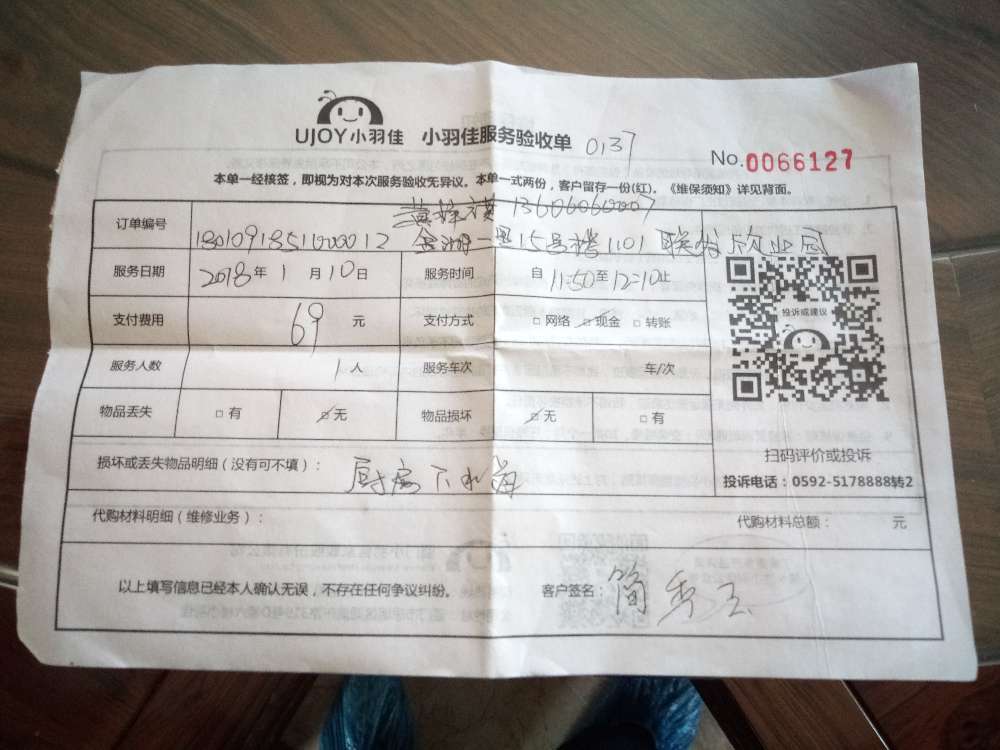 UJOY小羽佳 小羽佳服务验收单 0137
No.0066127
本单一经核签，即视为对本次服务验收无异议。本单一式两份，客户留存一份(红)。《维保须知》详见背面。
13606060007
订单编号 1801091851000012 金湖一里15号楼1101 联发欣业园
服务日期 2018年1月10日 服务时间 自11:50至12:10止
支付费用 69元 支付方式 □网络 ☑现金 □转账
投诉或建议
服务人数 1人 服务车次 车/次
物品丢失 □有 ☑无 物品损坏 ☑无 □有
扫码评价或投诉
损坏或丢失物品明细（没有可不填）： 厨房下水管
投诉电话：0592-5178888转2
代购材料明细（维修业务）： 代购材料总额： 元
以上填写信息已经本人确认无误，不存在任何争议纠纷。 客户签名：简秀玉